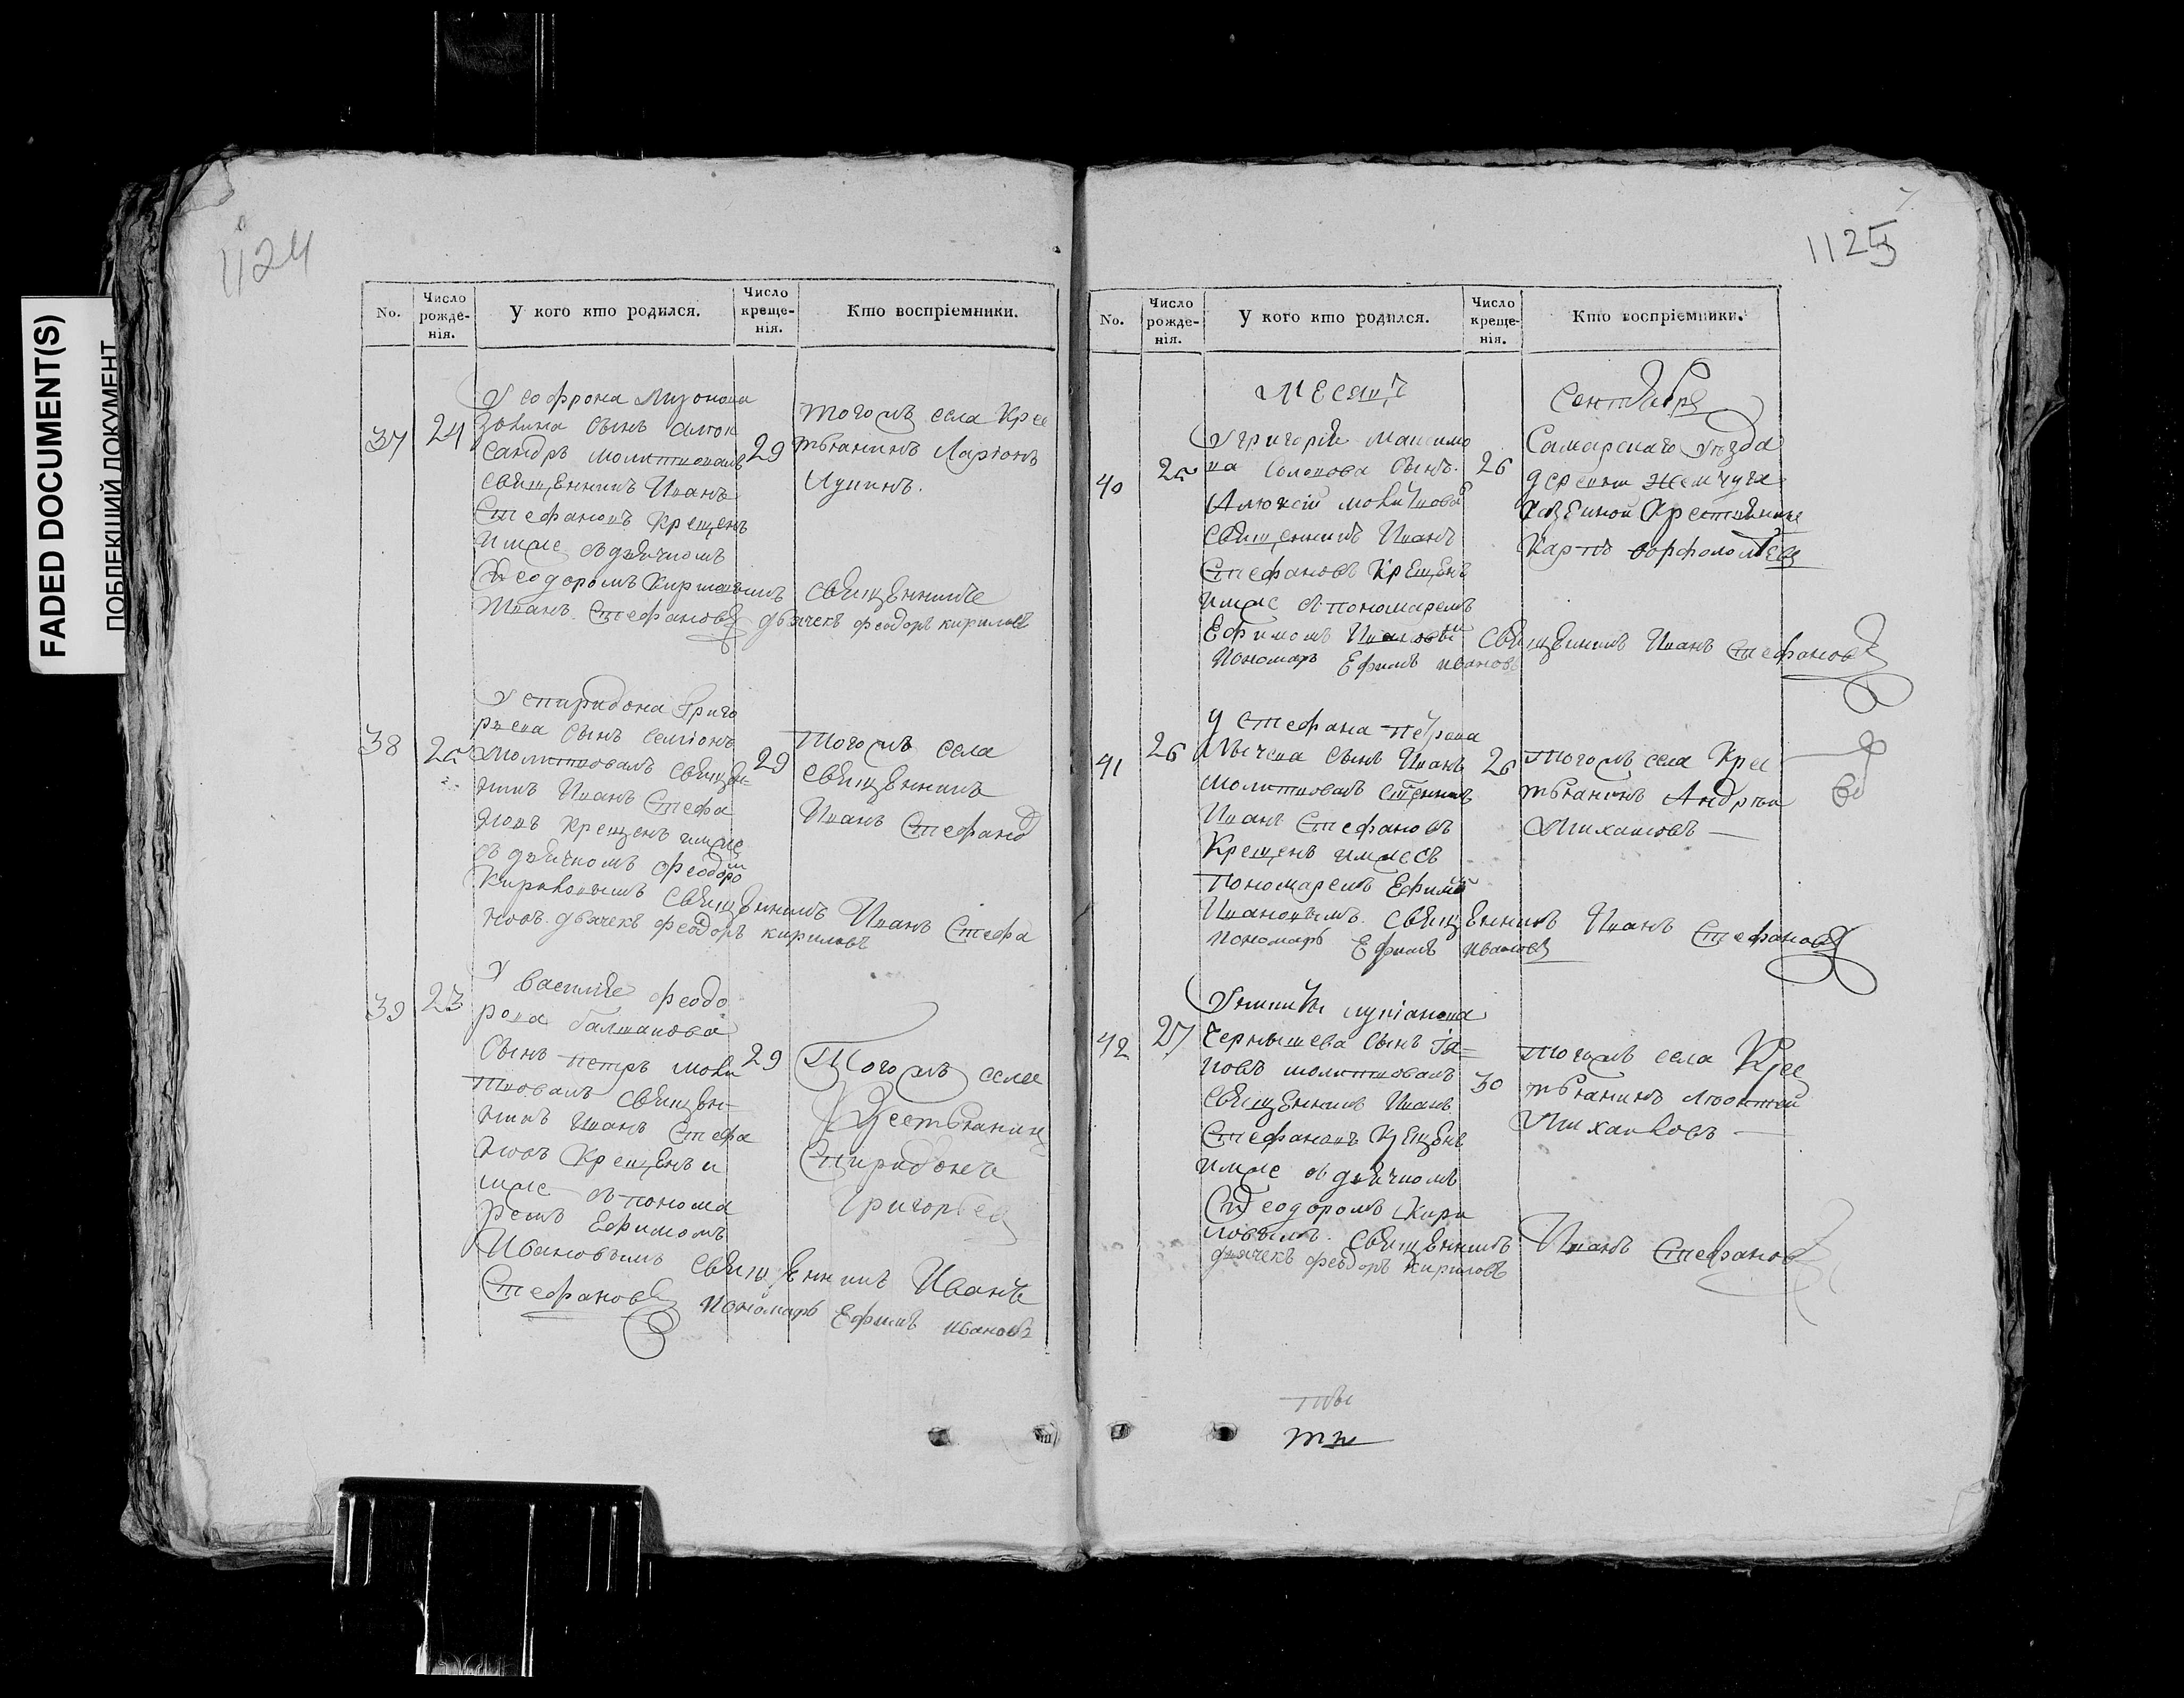 FADED DOCUMENT(S)
ПОБЛЕКШИЙ ДОКУМЕНТ
1124
No.
Число рожде-нія.
У кого кто родился.
Число креще-нія.
Кто воспріемники.
37
24
У софрона Миронова
сынъ алек
сандръ молитвовалъ
священникъ Иванъ
Стефановъ крещенъ
имже съ дьячкомъ
Феодоромъ Кириловымъ
29
тогожъ села крес
тьянинъ Ларіонъ
Лупинъ.
священникъ
Иванъ Стефановъ дьячекъ феодоръ кириловъ
38
25
У спиридона Григо
рьева сынъ семіонъ
молитвовалъ священ=
никъ Иванъ Стефа
новъ крещенъ имже
съ дьячкомъ феодоромъ
Кириловымъ священникъ Иванъ Стефа
новъ. дьячекъ феодоръ кириловъ
29
тогожъ села
священникъ
Иванъ Стефановъ
39
23
У василія феодо
рова балмапова
сынъ петръ моли
твовалъ священ-
никъ Иванъ Стефа
новъ крещенъ и
мже съ понома
ремъ Ефимомъ
Ивановымъ священникъ Иванъ
Стефановъ пономарь Ефимъ ивановъ
29
Тогожъ села
Крестьянинъ
Спиридонъ
Григорьевъ
1125
No.
Число рожде-нія.
У кого кто родился.
Число креще-нія.
Кто воспріемники.
Месяцъ
Сентябрь
40
25
У григорія максимо
ва сынъ
Алексій молитвовалъ
священникъ Иванъ
Стефановъ крещенъ
имже съ пономаремъ
Ефимомъ Ивановымъ священникъ Иванъ Стефановъ
Пономарь Ефимъ ивановъ
26
Самарскаго уезда
деревни Жемчуга
крестьянинъ
Карпъ ворфоломеевъ
41
26
У Стефана петрова
сынъ Иванъ
молитвовалъ
Иванъ Стефановъ
крещенъ имже съ
пономаремъ Ефимомъ
Ивановымъ. священникъ Иванъ Стефановъ
пономарь Ефимъ ивановъ
26
тогожъ села крес
тьянинъ Андрей
Михаиловъ —
42
27
У никиты лукіанова
Чернышева сынъ Іа=
ковъ молитвовалъ
священникъ Иванъ
Стефановъ крещенъ
имже съ дьячкомъ
Феодоромъ Кири
ловымъ. священникъ Иванъ Стефановъ
дьячекъ феодоръ кириловъ
30
тогожъ села крес
тьянинъ
Михаиловъ —